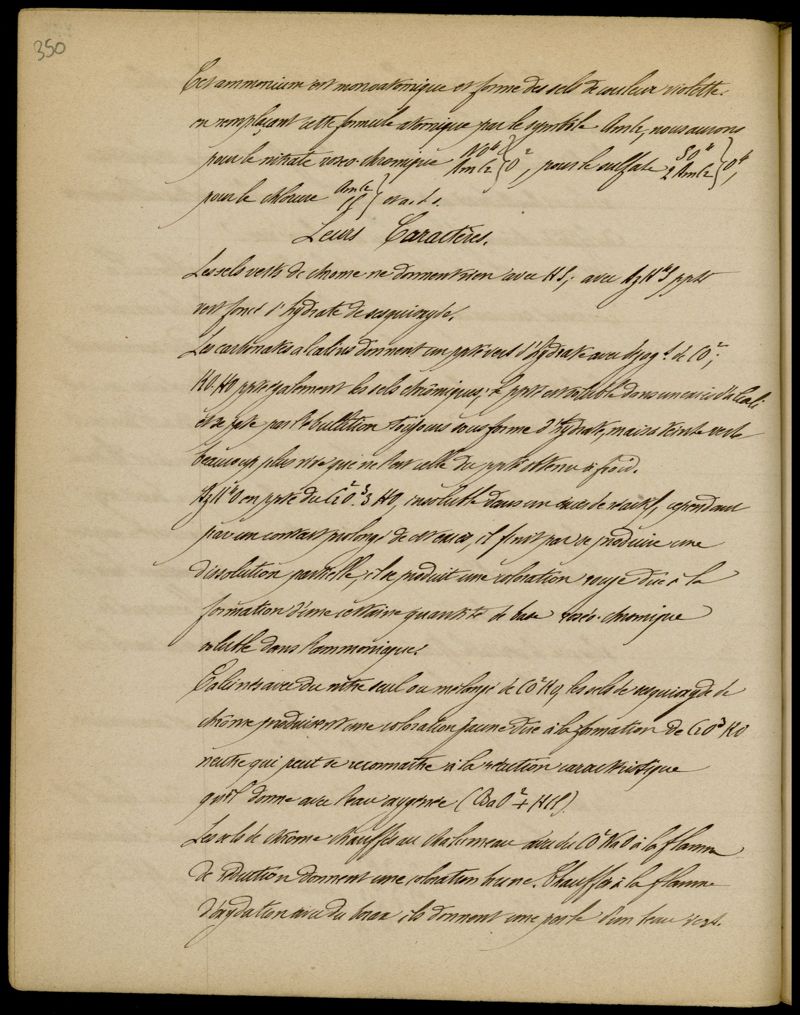 350
Cet ammonium est monoatomique et forme des sels de couleur violette.
en remplaçant cette formule atomique par le symbôle AmCr, nous aurons
pour le nitrate roseo-chromique AzO⁴ AmCr } O², pour le sulfate SO⁴ 2 AmCr } O⁴,
pour le chlorure AmCr Cl } et a. d. s.
Leurs Caractères.
Les sels verts de chrome ne donnent rien avec HS; avec AzH⁴S ppté
vert foncé d'hydrate de sesquioxyde.
Les carbonates alcalins donnent un ppté vert d'hydrate avec dégagᵗ de CO²;
KO.HO ppte également les sels chrômiques; le ppté est soluble dans un excès d'alcali
et se ppte par l'ébullition toujours sous forme d'hydrate, mais à teinte verte
beaucoup plus vive que ne l'est celle du ppté obtenu à froid.
AzH⁴O en ppte du Cr²O³.3HO, insoluble dans un excès de réactif, cependant
par un contact prolongé de cet excès, il finit par se produire une
dissolution partielle, il se produit une coloration rouge due à la
formation d'une certaine quantité de base roséo-chromique
soluble dans l'ammoniaque.
Calcinés avec du nitre seul ou mélangé de CO²KO, les sels de sesquioxyde de
chrôme produisent une coloration jaune due à la formation de CrO³KO
neutre qui peut se reconnaître à la réaction caractéristique
qu'il donne avec l'eau oxygénée (BaO² + HCl).
Les sels de chrome chauffés au chalumeau avec du CO²NaO à la flamme
de réduction donnent une coloration brune. Chauffés à la flamme
d'oxydation avec du borax, ils donnent une perle d'un beau vert.